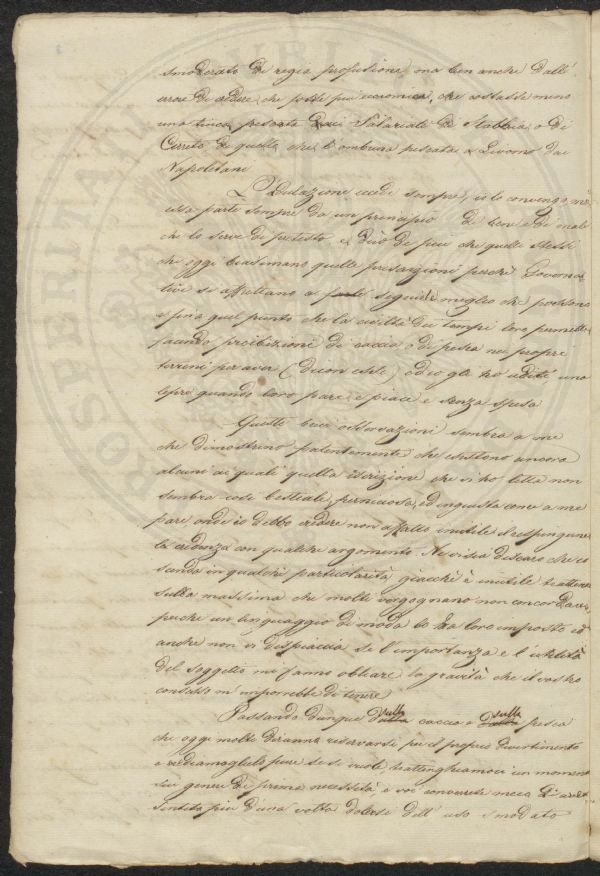 smoderato di regia profusione, ma ben anche dall'
error di credere, che potesse più economica, che costasse meno
una tinca pescata dai Salariati di Stabbia, o di
Cerreto di quella che l'ombrina pescata a Livorno dai
Napoletani
L'Adulazione eccede sempre, io lo convengo, ma
essa parte sempre da un principio di bene e di male
che lo serve di pretesto e dirò di più che quelli stessi
che oggi biasimano quelle prescrizioni perché Governa
tive si affrettano a farle seguire meglio che possono
e fino a quel punto che la civiltà dei tempi loro permette
facendo proibizione di caccia o di pesca nei proprj
terreni per aver (dicon essi) ed io gli ho uditi una
lepre quando loro pare e piace e senza spesa
Queste brevi osservazioni sembra a me
che dimostrino patentemente che esistono ancora
alcuni ai quali quella iscrizione che vi ho letta non
sembra così bestiale, perniciosa, ed ingiusta come a me
pare onde io debbo credere non affatto inutile il respingerne
la credenza con qualche argomento. Ne vi sia discaro che io
scenda in qualche particolarità, giacché è inutile trattenersi
sulla massima che molti vergognano non concordare
perché un linguaggio di moda lo ha loro imposto ed
anche non vi dispiaccia se l'importanza e l'utilità
del soggetto mi fanno obliare la gravità che il vostro
consesso m'imporrebbe di tenere
Passando dunque dalla sulla caccia o dalla sulla pesca
che oggi molti diranno riservarsi per il proprio divertimento
e vediamoglielo pure se si vuole tratteniamoci un momento
sui generi di prima necessità, e voi converrete meco di aver
sentito più d'una volta dolersi dell'uso smodato